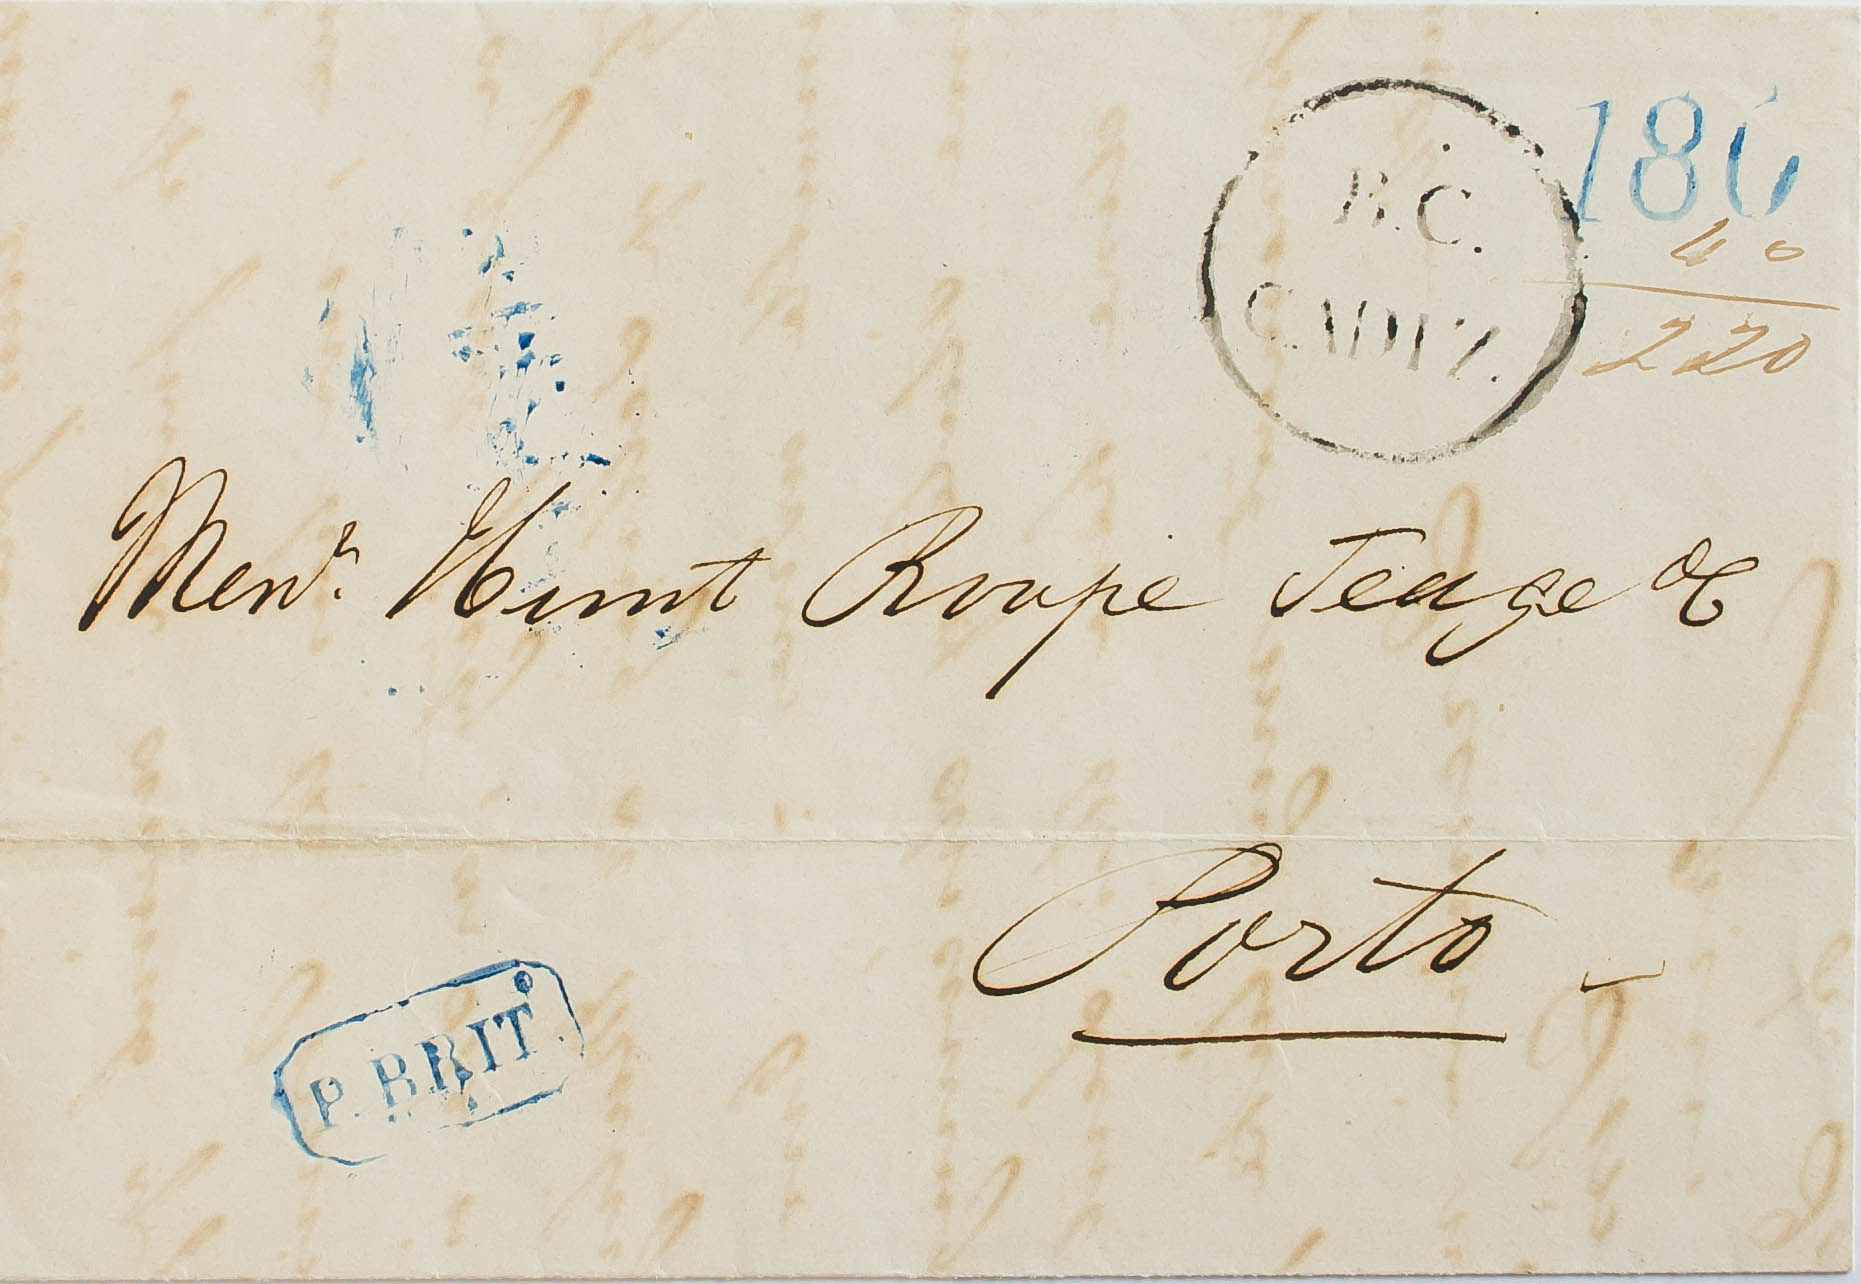 180
40
220
B.C.
CADIZ.
Messrs. Hunt Roope Teage &C
Porto
P. BRIT.